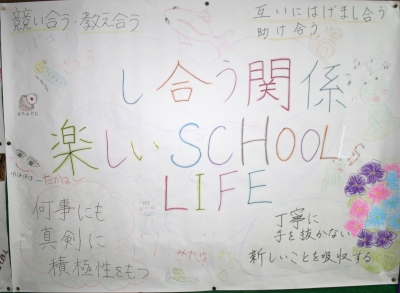 競い合う・教え合う
互いにはげまし合う
助け合う
し合う関係
楽しいSCHOOL
LIFE
何事にも
真剣に
積極性をもつ
丁寧に
手を抜かない
新しいことを吸収する